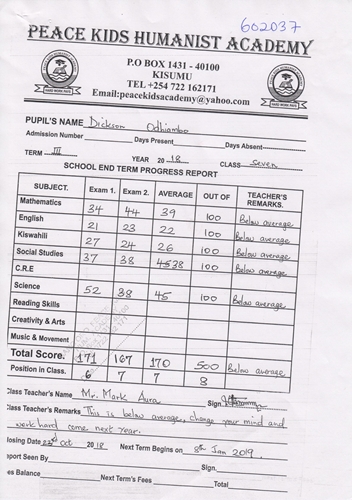 602037
PEACE KIDS HUMANIST ACADEMY
P.O BOX 1431 - 40100
KISUMU
TEL +254 722 162171
Email:peacekidsacademy@yahoo.com
PUPIL'S NAME Dickson Odhiambo
Admission Number Days Present Days Absent
TERM III YEAR 2018 CLASS Seven
SCHOOL END TERM PROGRESS REPORT
SUBJECT. Exam 1. Exam 2. AVERAGE OUT OF TEACHER'S REMARKS.
Mathematics 34 44 39 100 Below average
English 21 23 22 100 Below average
Kiswahili 27 24 26 100 Below average
Social Studies 37 38 4538 100 Below average
C.R.E
Science 52 38 45 100 Below average
Reading Skills
Creativity & Arts
Music & Movement
Total Score. 171 167 170 500 Below average
Position in Class. 6 7 7 8
Class Teacher's Name Mr. Mark Aura Sign
Class Teacher's Remarks This is below average, change your mind and
work hard come next year.
losing Date Oct 2018 Next Term Begins on 8th Jan 2019
port Seen By Sign.
es Balance Next Term's Fees Total